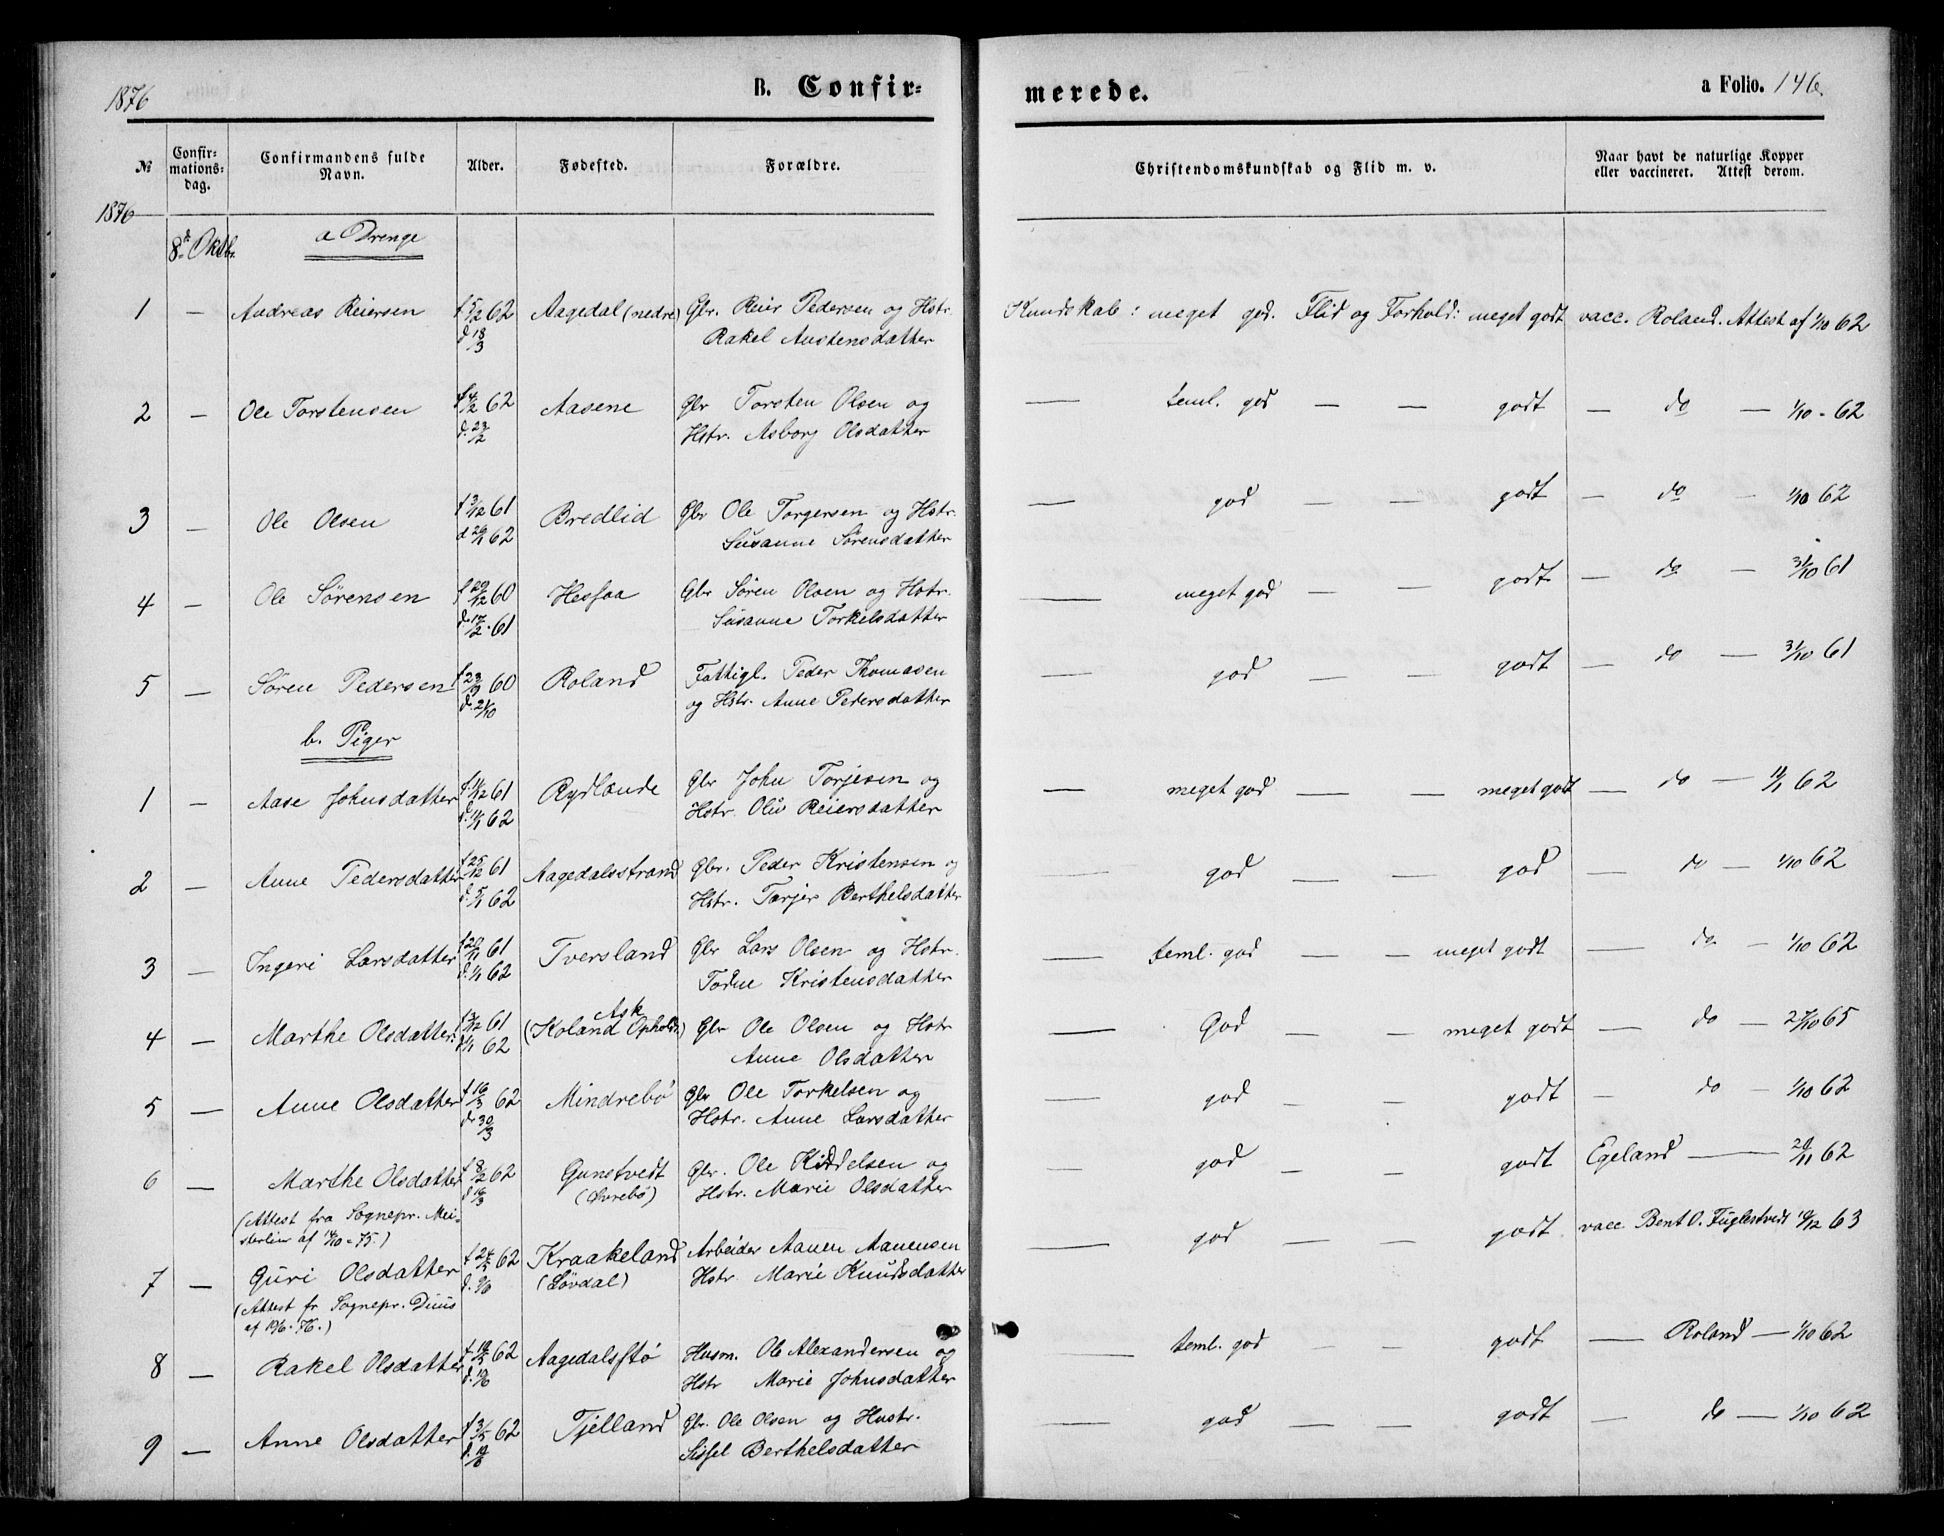 1876
B. Confir=
merede.
a Folio. 146
№
Confir-
mations-
dag.
Confirmandens fulde
Navn.
Alder.
Fødested.
Forældre.
Christendomskundskab og Flid m. v.
Naar havt de naturlige Kopper
eller vaccineret. Attest derom.
1876
8de Oktbr.
a Drenge
1 — Andreas Reiersen f 5/2 62 Aagedal (nedre) Gbr. Reier Pedersen og Hstr. Kundskab: meget god. Flid og Forhold: meget godt vacc. Roland. Attest af 1/10 62
d 18/3 Rakel Austensdatter
2 — Ole Torstensen f 4/2 62 Aasene Gbr Torsten Olsen og — teml. god — — godt — do — 1/10 - 62
d. 23/2 Hstr. Asborg Olsdatter
3 — Ole Olsen f 3/12 61 Bredlid Gbr Ole Torgersen og Hstr. — god — — godt — do — 1/10 62
d 26/1 62 Susanne Sørensdatter
4 — Ole Sørensen f 29/12 60 Hesfaa Gbr Sören Olsen og Hstr. — meget god — — godt — do — 31/10 61
d. 17/2 . 61 Susanne Torkelsdatter
5 — Sören Pedersen f 23/9 60 Roland Fattigl. Peder Thomasen — god — — godt — do — 31/10 61
d. 21/10 og Hstr. Anne Pedersdatter
b. Piger
1 — Aase Johnsdatter f 14/12 61 Rydlande Gbr John Torjesen og — meget god — — meget godt — do — 11/1 62
d. 11/1 62 Hstr. Oliv Reiersdatter
2 — Anne Pedersdatter f 25/12 61 Aagedalsstrand Gbr. Peder Kristensen og — god — — god — do — 1/10 62
d. 5/1 62 Hstr. Tarjer Berthelsdatter
3 — Ingeri Larsdatter f 20/11 61 Tversland Gbr Lars Olsen og Hstr. — teml. god — — meget godt — do — 1/10 62
d. 1/1 62 Todne Kristensdatter
Ask
4 — Marthe Olsdatter f 3/12 61 (Roland Opholdt) Gbr Ole Olsen og Hstr — God — — meget godt — do — 27/10 65
d 1/1 62 Anne Olsdatter
5 — Anne Olsdatter f 16/3 62 Mindrebö Gbr Ole Torkelsen og — god — — godt — do — 1/10 62
d. 30/3 Hstr. Anne Larsdatter
6 — Marthe Olsdatter f 8/2 62 Gunstvedt Gbr. Ole Kiddelsen og — god — — godt Egeland — 20/11 62
d 16/3 (Øvrebö) Hstr. Marie Olsdatter
(Attest fra Sognepr. Mei-
sterlin af 14/10 - 75.)
7 — Guri Olsdatter f 24/5 62 Kraakeland Arbeider Aanen Aanensen — god — — godt vacc Bent O. Fuglestvedt 10/12 63
d. 9/6 (Lövdal) Hstr. Marie Knudsdatter
(Attest fr Sognepr. Duus
af 19/6 - 76.)
8 — Rakel Olsdatter f. 19/5 62 Aagedalsstø Husm. Ole Alexandersen og — teml. god — — godt — Roland — 1/10 62
d. 10/6 Hstr Marie Johnsdatter
9 — Anne Olsdatter f 3/5 62 Tjelland Gbr. Ole Olsen og Hustr. — god — — godt — do — 1/10 62
Sissel Berthelsdatter